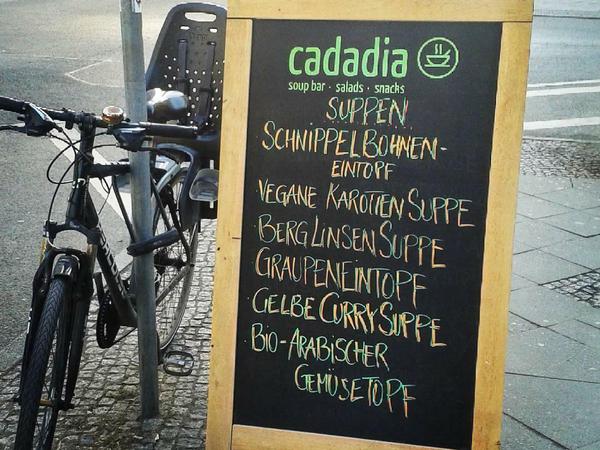 cadadia
soup bar · salads · snacks
SUPPEN
SCHNIPPELBOHNEN-
EINTOPF
VEGANE KAROTTEN SUPPE
BERGLINSEN SUPPE
GRAUPENEINTOPF
GELBE CURRY SUPPE
BIO-ARABISCHER
GEMÜSETOPF